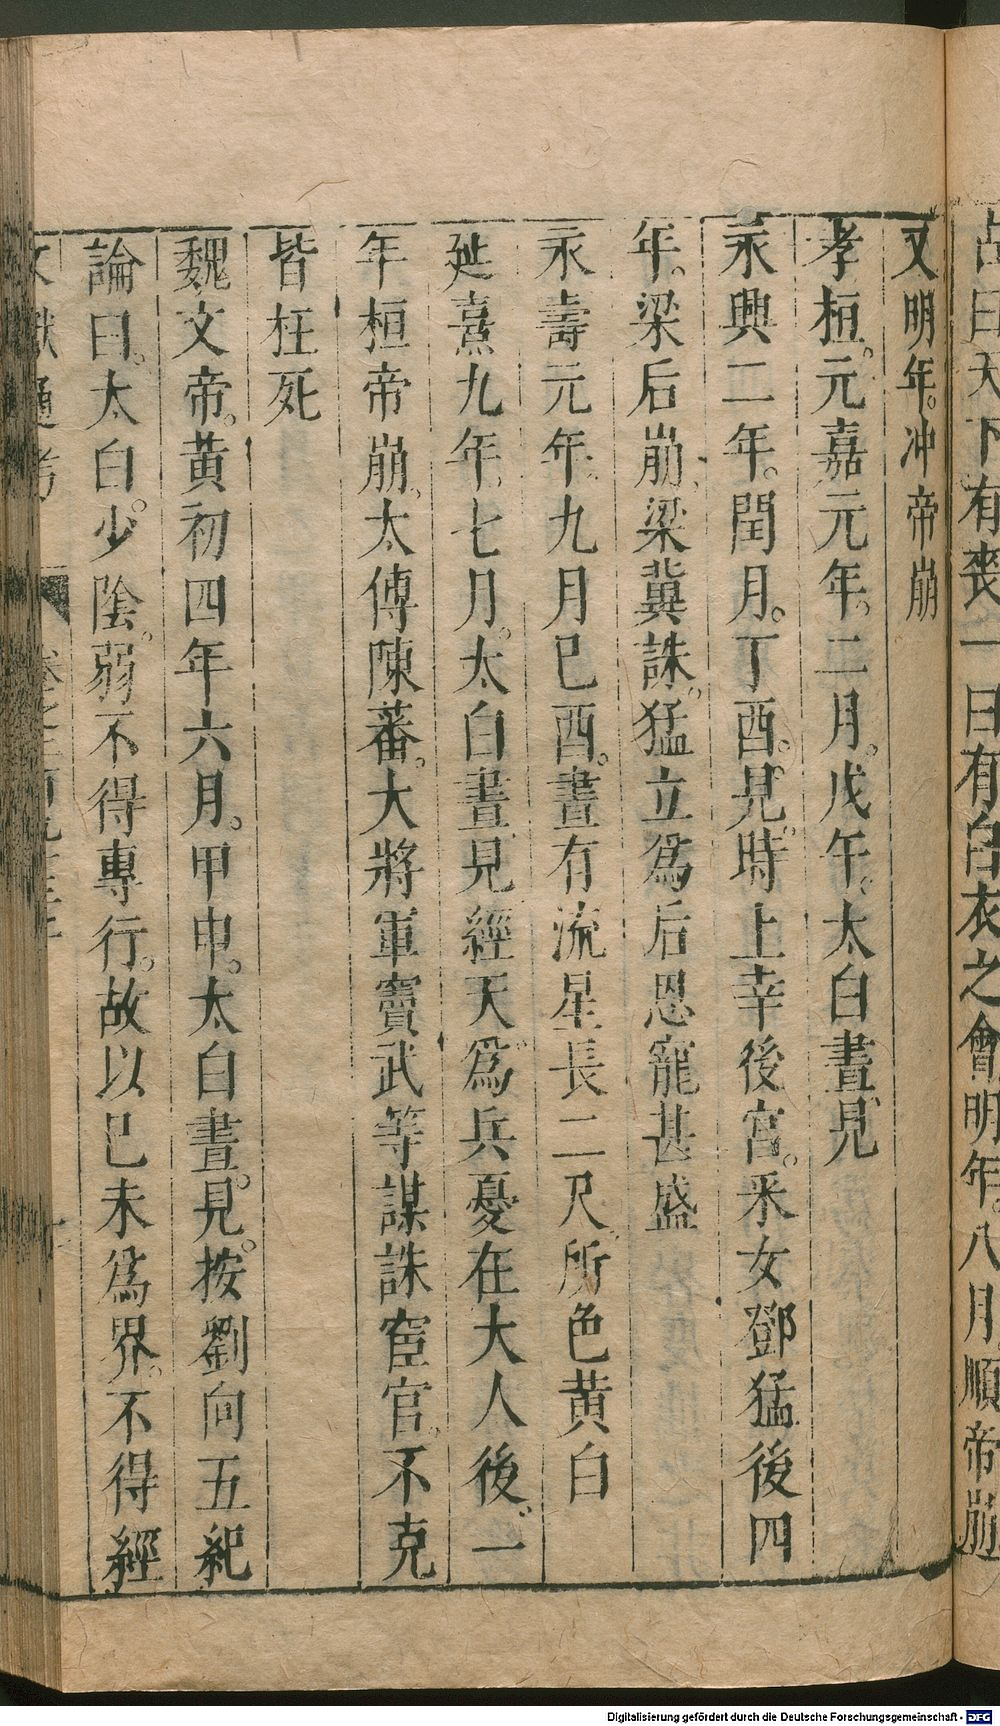 占曰天下有喪一曰有白衣之會明年。八月順帝崩
又明年。冲帝崩
孝桓。元嘉元年。二月。戊午。太白晝見
永興二年。閏月。丁酉。見。時上幸後宮。采女鄧猛後四
年。梁后崩。梁冀誅。猛立爲后恩寵甚盛
永壽元年。九月巳酉。晝有流星長二尺。所色黄白
延熹九年。七月。太白晝見經天。爲兵憂在大人後。一
年桓帝崩。太傅陳蕃。大將軍竇武等謀誅宦官。不克
皆枉死
魏文帝。黄初四年六月。甲申。太白晝。見。按劉向五紀
論曰。太白。少陰。弱不得專行。故以巳未爲界。不得經
文獻通考
Digitalisierung gefördert durch die Deutsche Forschungsgemeinschaft - DFG